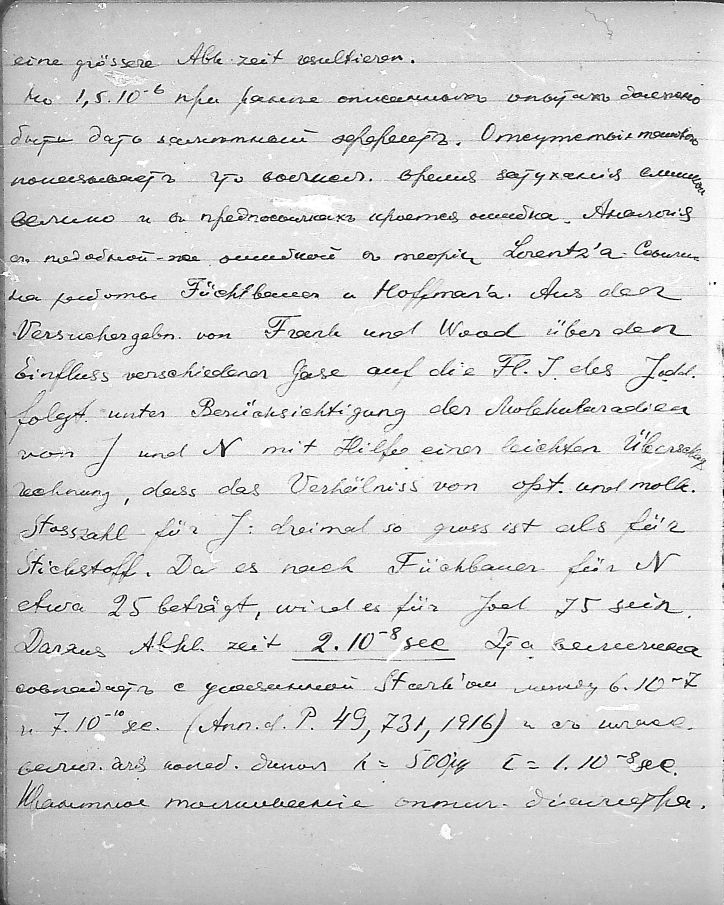 eine grössere Abk. zeit resultieren.
Но 1,5.10⁻⁶ при ранее описанныхъ опытахъ должно
быть дать замѣтный эффектъ. Отсутствіе такового
показываетъ что вычисл. время затуханія слишком
велико и въ предпосылкахъ кроется ошибка. Аналогія
съ подобной-же ошибкой въ теоріи Lorentz'a.
на работы Füchtbauer и Hoffmann'a. Aus den
Versuchergebn. von Frank und Wood über den
Einfluss verschiedener Gase auf die Fl. J. des Jodd.
folgt unter Berücksichtigung der Molekularadien
von J und N mit Hilfe einer leichten Überschlag
rechnung, dass das Verhälniss von opt. und molk.
Stosszahl für J: dreimal so gross ist als für
Stickstoff. Da es nach Füchbauer für N
etwa 25 beträgt, wird es für Jod 75 sein.
Daraus Abkl. zeit 2.10⁻⁸ sec Эта величина
совпадаетъ с указанной Stark'ом между 6.10⁻⁷
и 7.10⁻¹⁰ se. (Ann. d. P. 49, 731, 1916) и съ
велич. для колеб. λ = 500μμ τ = 1.10⁻⁸ se.
Квантовое толкованіе оптич. діаметра.